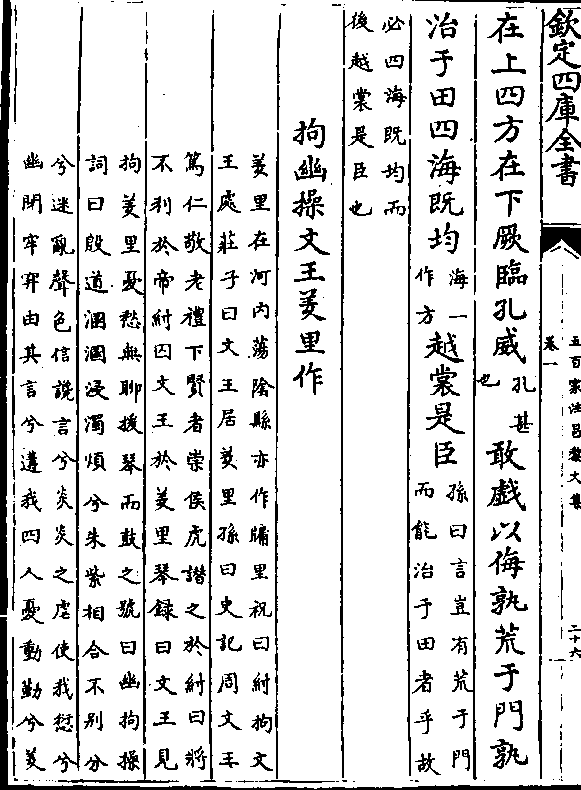 欽定四庫全書
卷一
五百家注昌黎文集
二十六
在上四方在下厥臨孔威孔甚也敢戲以侮孰荒于門孰
治于田四海既均海一作方越裳是臣孫曰言豈有荒于門而能治于田者乎故
必四海既均而後越裳是臣也
拘幽操文王羑里作
羑里在河内蕩陰縣亦作牖里祝曰紂拘文
王處莊子曰文王居羑里孫曰史記周文王
篤仁敬老禮下賢者崇侯虎譖之於紂曰將
不利於帝紂囚文王於羑里琴録曰文王見
拘羑里憂愁無聊援琴而鼓之號曰幽拘操
詞曰殷道溷溷浸濁煩兮朱紫相合不别分
兮迷亂聲色信讒言兮炎炎之虐使我愆兮
幽閉牢穽由其言兮遘我四人憂動勤兮羑